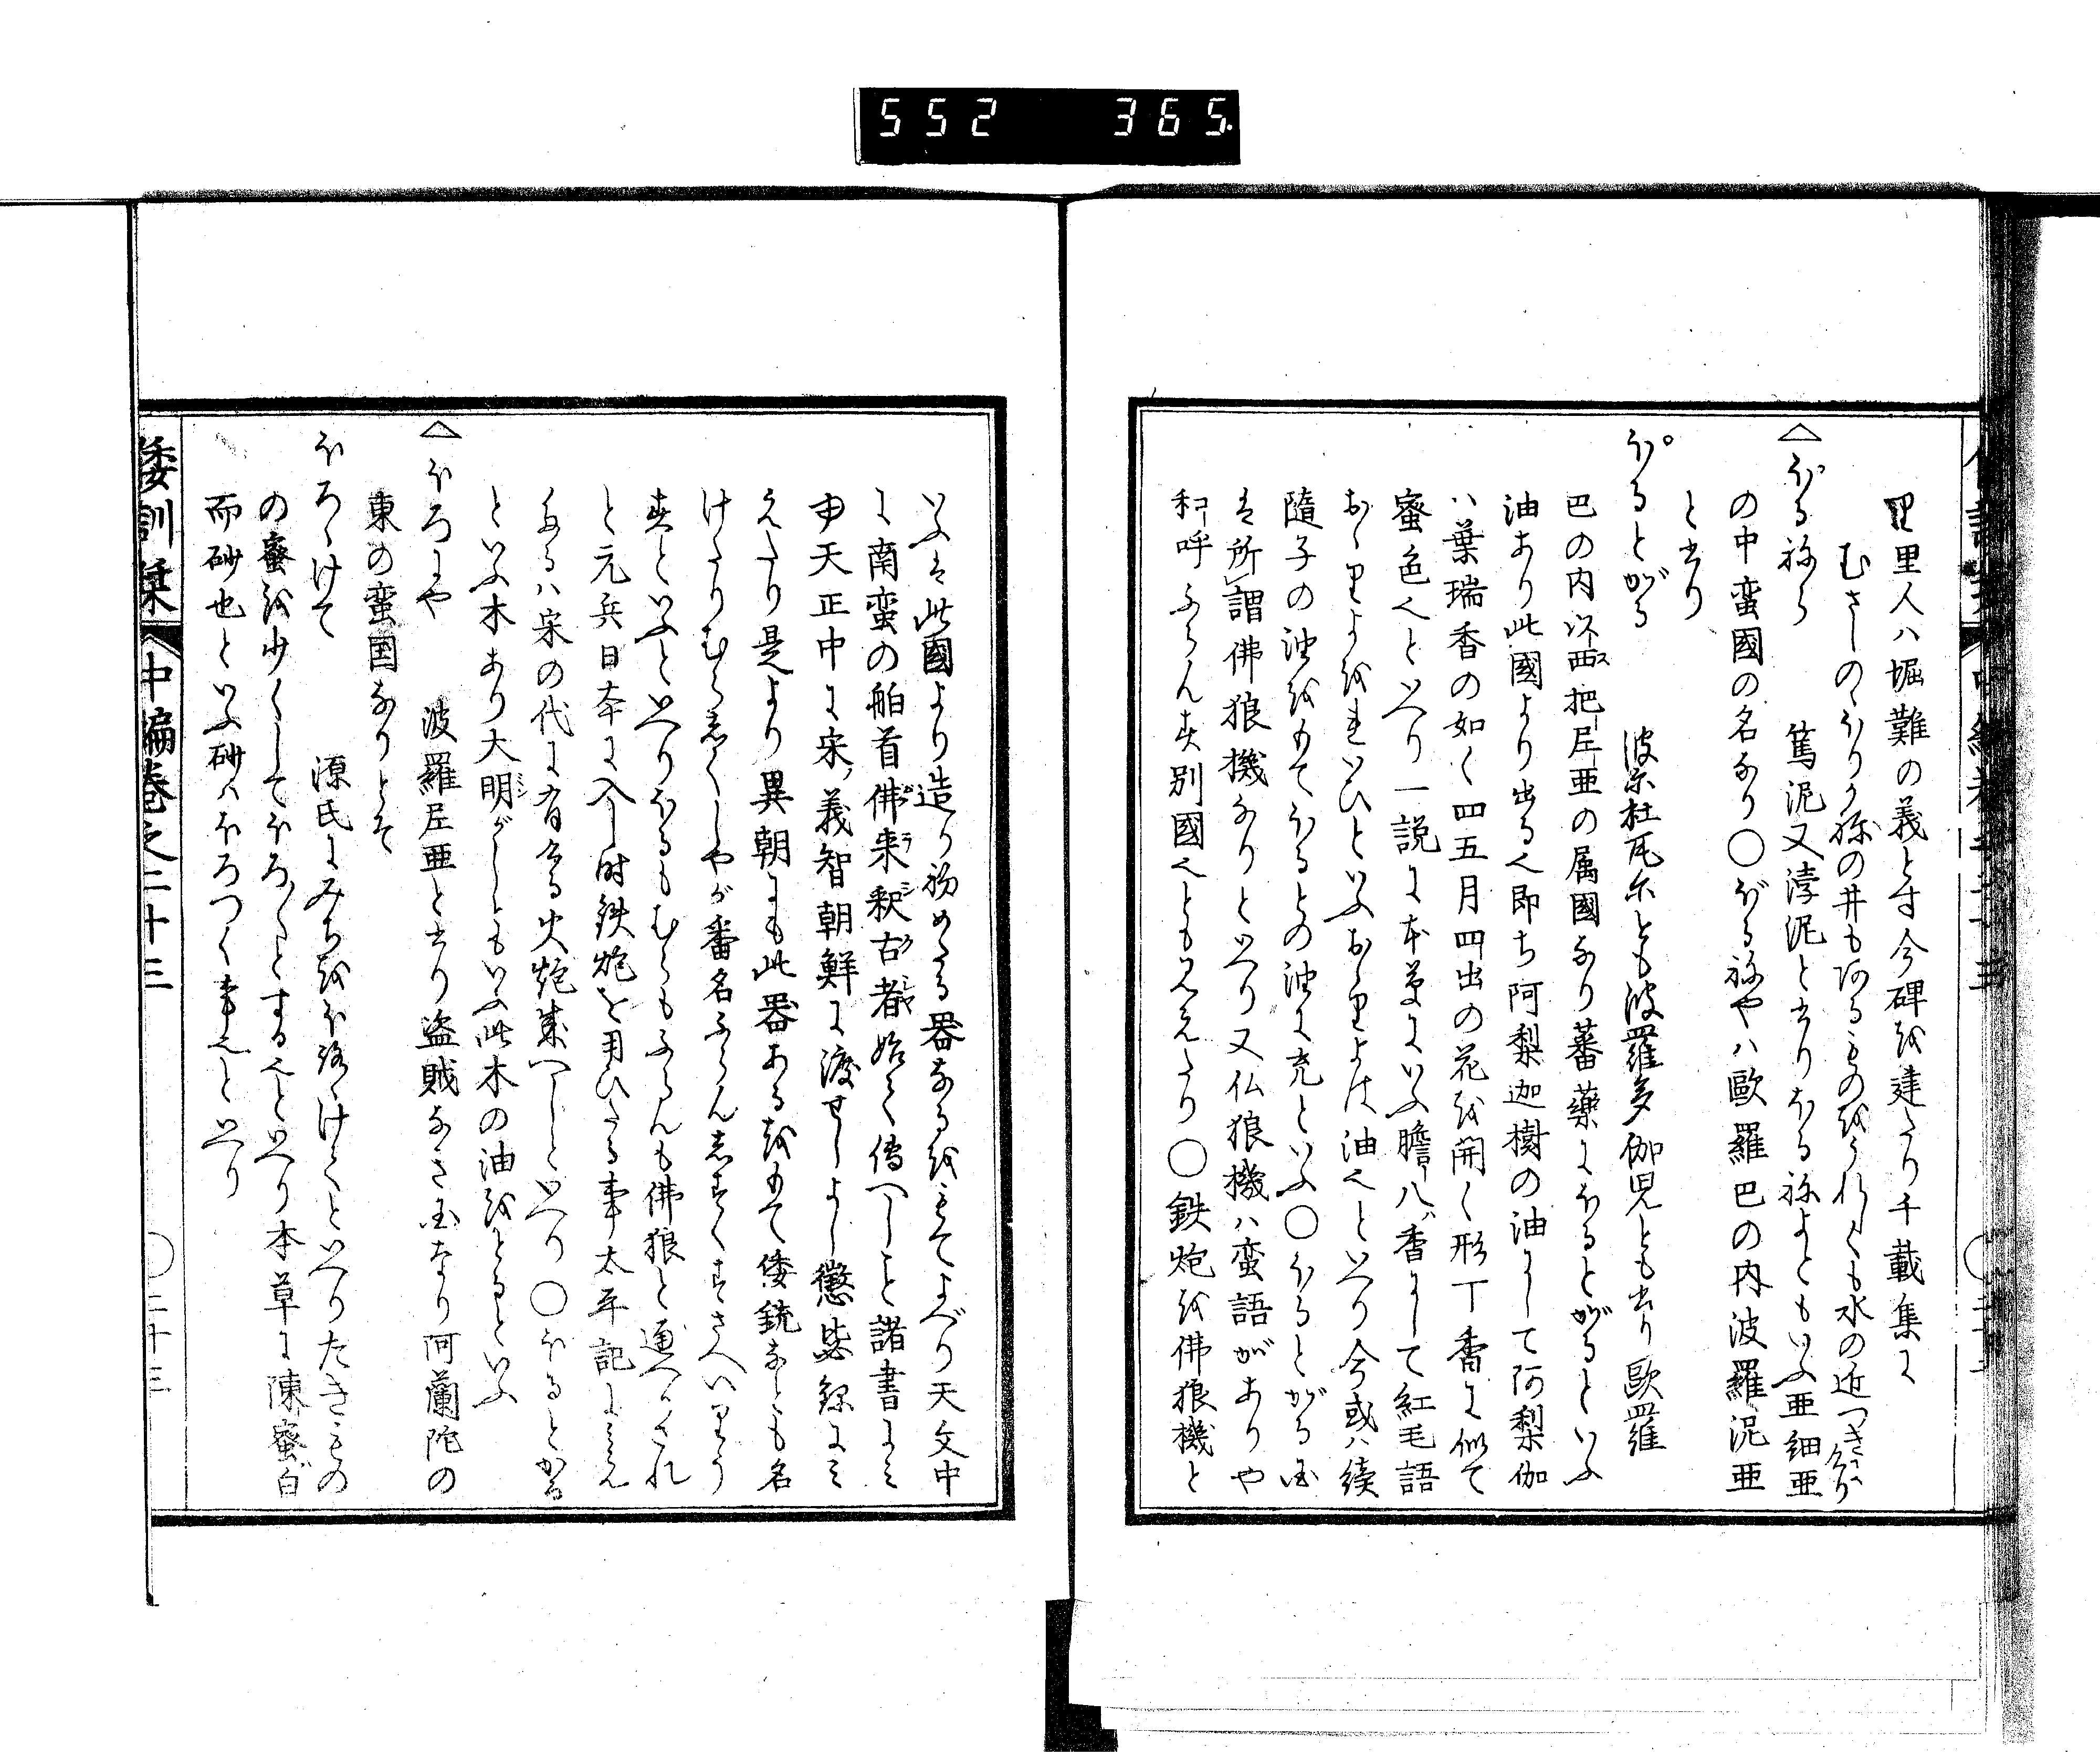 552 365.
里里人ハ堀難の義と寸今碑を建たり千載集に
むさしのゝほりかねの井もあるものをうれしくも水の近つきにけり
△ぼるねら 篤泥又浡泥と书りほるねよともいふ亜細亜
の中蛮國の名なり〇ぼるねやハ歐羅巴の内波羅泥亜
と书り
ぽるとがる 波尓杜瓦尓とも波羅多伽児とも书り歐羅
巴の内以西把尼亜の属國なり蕃藥にほるとがるといふ
油あり此國より出る也即ち阿梨迦樹の油にして阿梨伽
ハ葉瑞香の如く四五月四出の花を開く形丁香に似て
蜜色也といへり一説に本草にいふ膽八香にして紅毛語
おゝりよをれいひといふおゝりよは油也といへり今或ハ續
隨子の油をもてほるとの油に充といふ〇ほるとがる国
は所謂佛狼機なりといへり又仏狼機ハ蛮語がありや
和呼ふらんす別國也とも见えたり〇鉄炮を佛狼機と
いふは此國より造り初めたる器なるをもてよべり天文中
に南蛮の舶首佛来釈古者始て傳へしこと諸書にミ
申天正中に宋義智朝鮮に渡せしよし懲毖録にミ
えたり是より異朝にも此器あるをもて倭銃なとも名
けたりむら志くしやが番名ふらん志すくすさへいりう
すといふといへりほるもむらもふらんも佛狼と通へりされ
と元兵日本に入し時鉄炮を用ひたる事太平記にミえ
たるハ宋の代に有ける火炮業へしといへり〇ほるとかる
といふ木あり大明がしともいふ此木の油をとるといふ
△ほろにや 波羅尼亜と书り盗賊なき国なり阿蘭陀の
東の蛮国なりとそ
ほろゝけて 源氏にみちをほろゝけてといへりたきもの
の蜜を少くしてほろゝとする也といへり本草に陳蜜白
而砂也といふ砂ハほろつく事也といへり
倭訓栞 中編巻之二十三 〇二十三